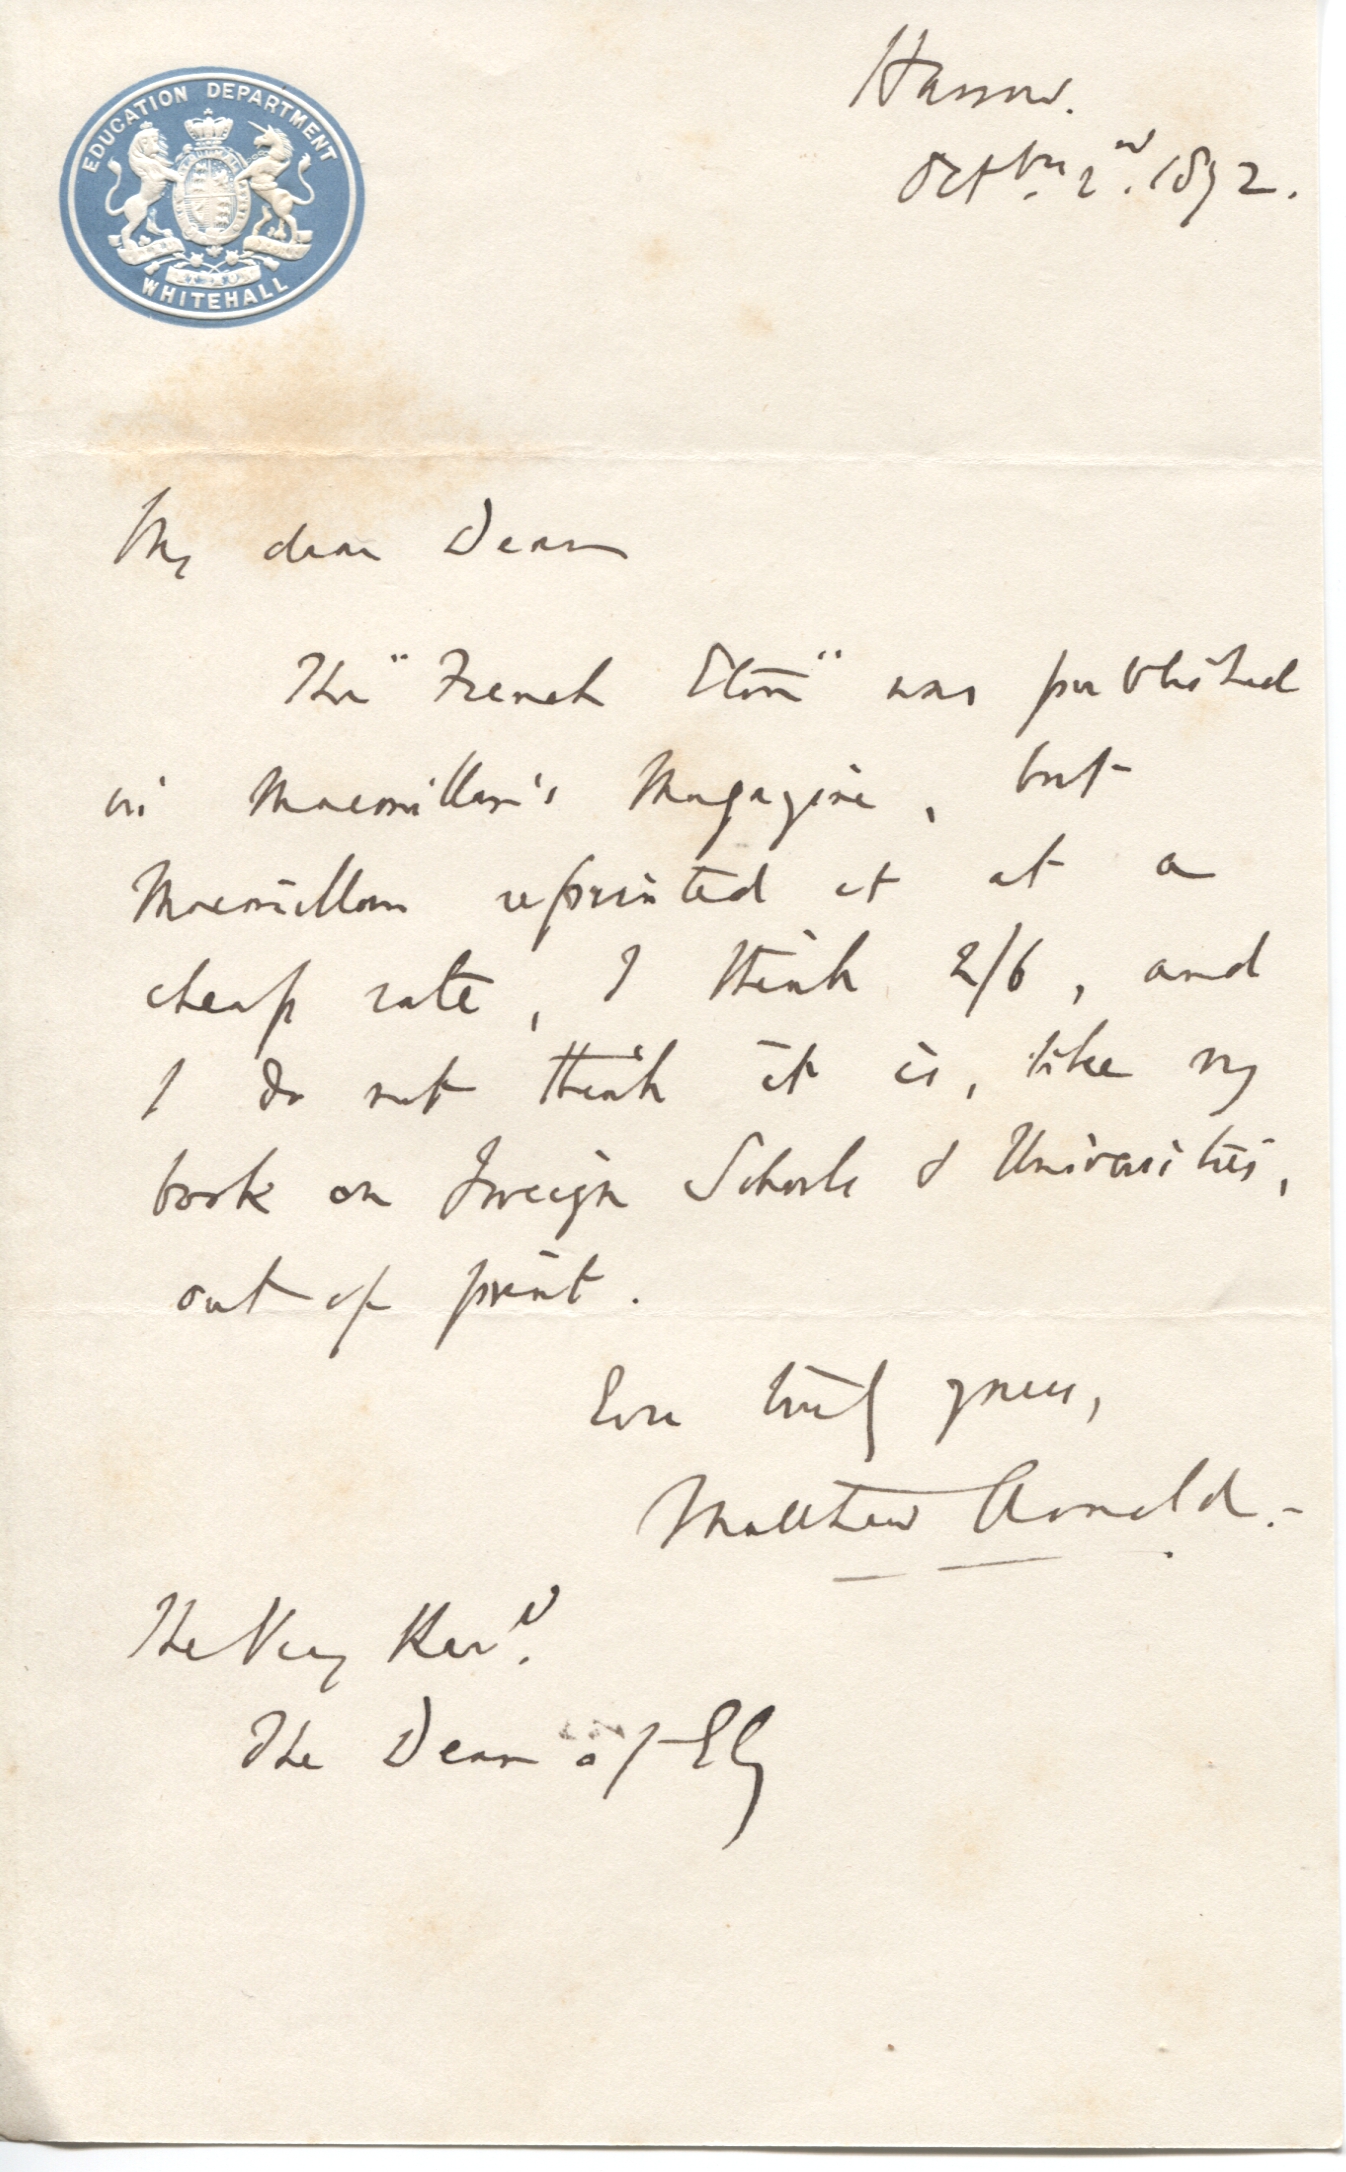 EDUCATION DEPARTMENT
WHITEHALL
Harrow.
Octbr. 2nd. 1872.
My dear Dean
The "French Eton" was published
in Macmillan's Magazine, but
Macmillan reprinted it at a
cheap rate, I think 2/6, and
I do not think it is, like my
book on Foreign Schools & Universities,
out of print.
Ever truly yours,
Matthew Arnold.-
The Very Revd.
The Dean of Ely